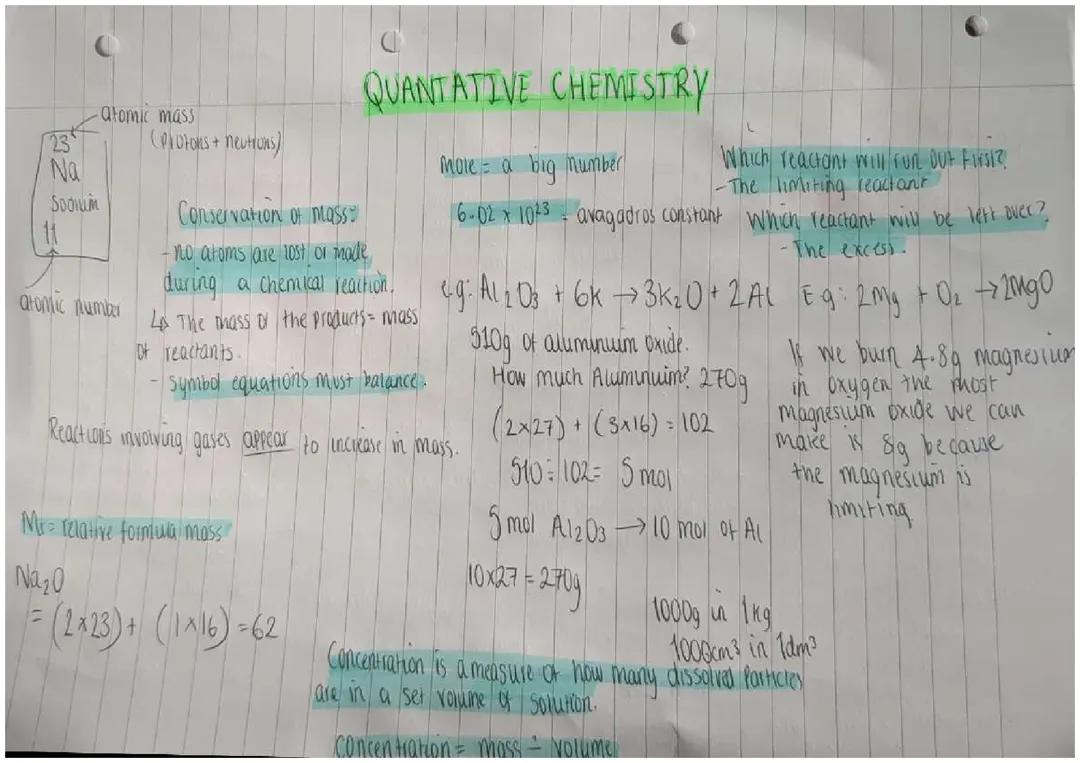 QUANTATIVE CHEMISTRY
atomic mass
(protons + neutrons)
23
Na
Sodium
11
atomic number
Conservation of mass:
- no atoms are lost or made
during a chemical reaction.
↳ The mass of the products = mass
of reactants.
- Symbol equations must balance.
Reactions involving gases appear to increase in mass.
Mr = relative formula mass
Na₂O
= (2×23) + (1×16) = 62
mole = a big number
6.02 × 10²³ = avagadros constant
e.g: Al₂O₃ + 6K → 3K₂O + 2Al
510g of aluminuim oxide.
How much Aluminuim? 270g
(2×27) + (3×16) = 102
510 ÷ 102 = 5 mol
5 mol Al₂O₃ → 10 mol of Al
10×27 = 270g
Which reactant will run out first?
- The limiting reactant
Which reactant will be left over?
- The excess.
E.g: 2Mg + O₂ → 2MgO
If we burn 4.8g magnesium
in oxygen the most
magnesium oxide we can
make is 8g because
the magnesium is
limiting
1000g in 1kg
1000cm³ in 1dm³
Concentration is a measure of how many dissolved particles
are in a set volume of solution.
Concentration = mass ÷ volume